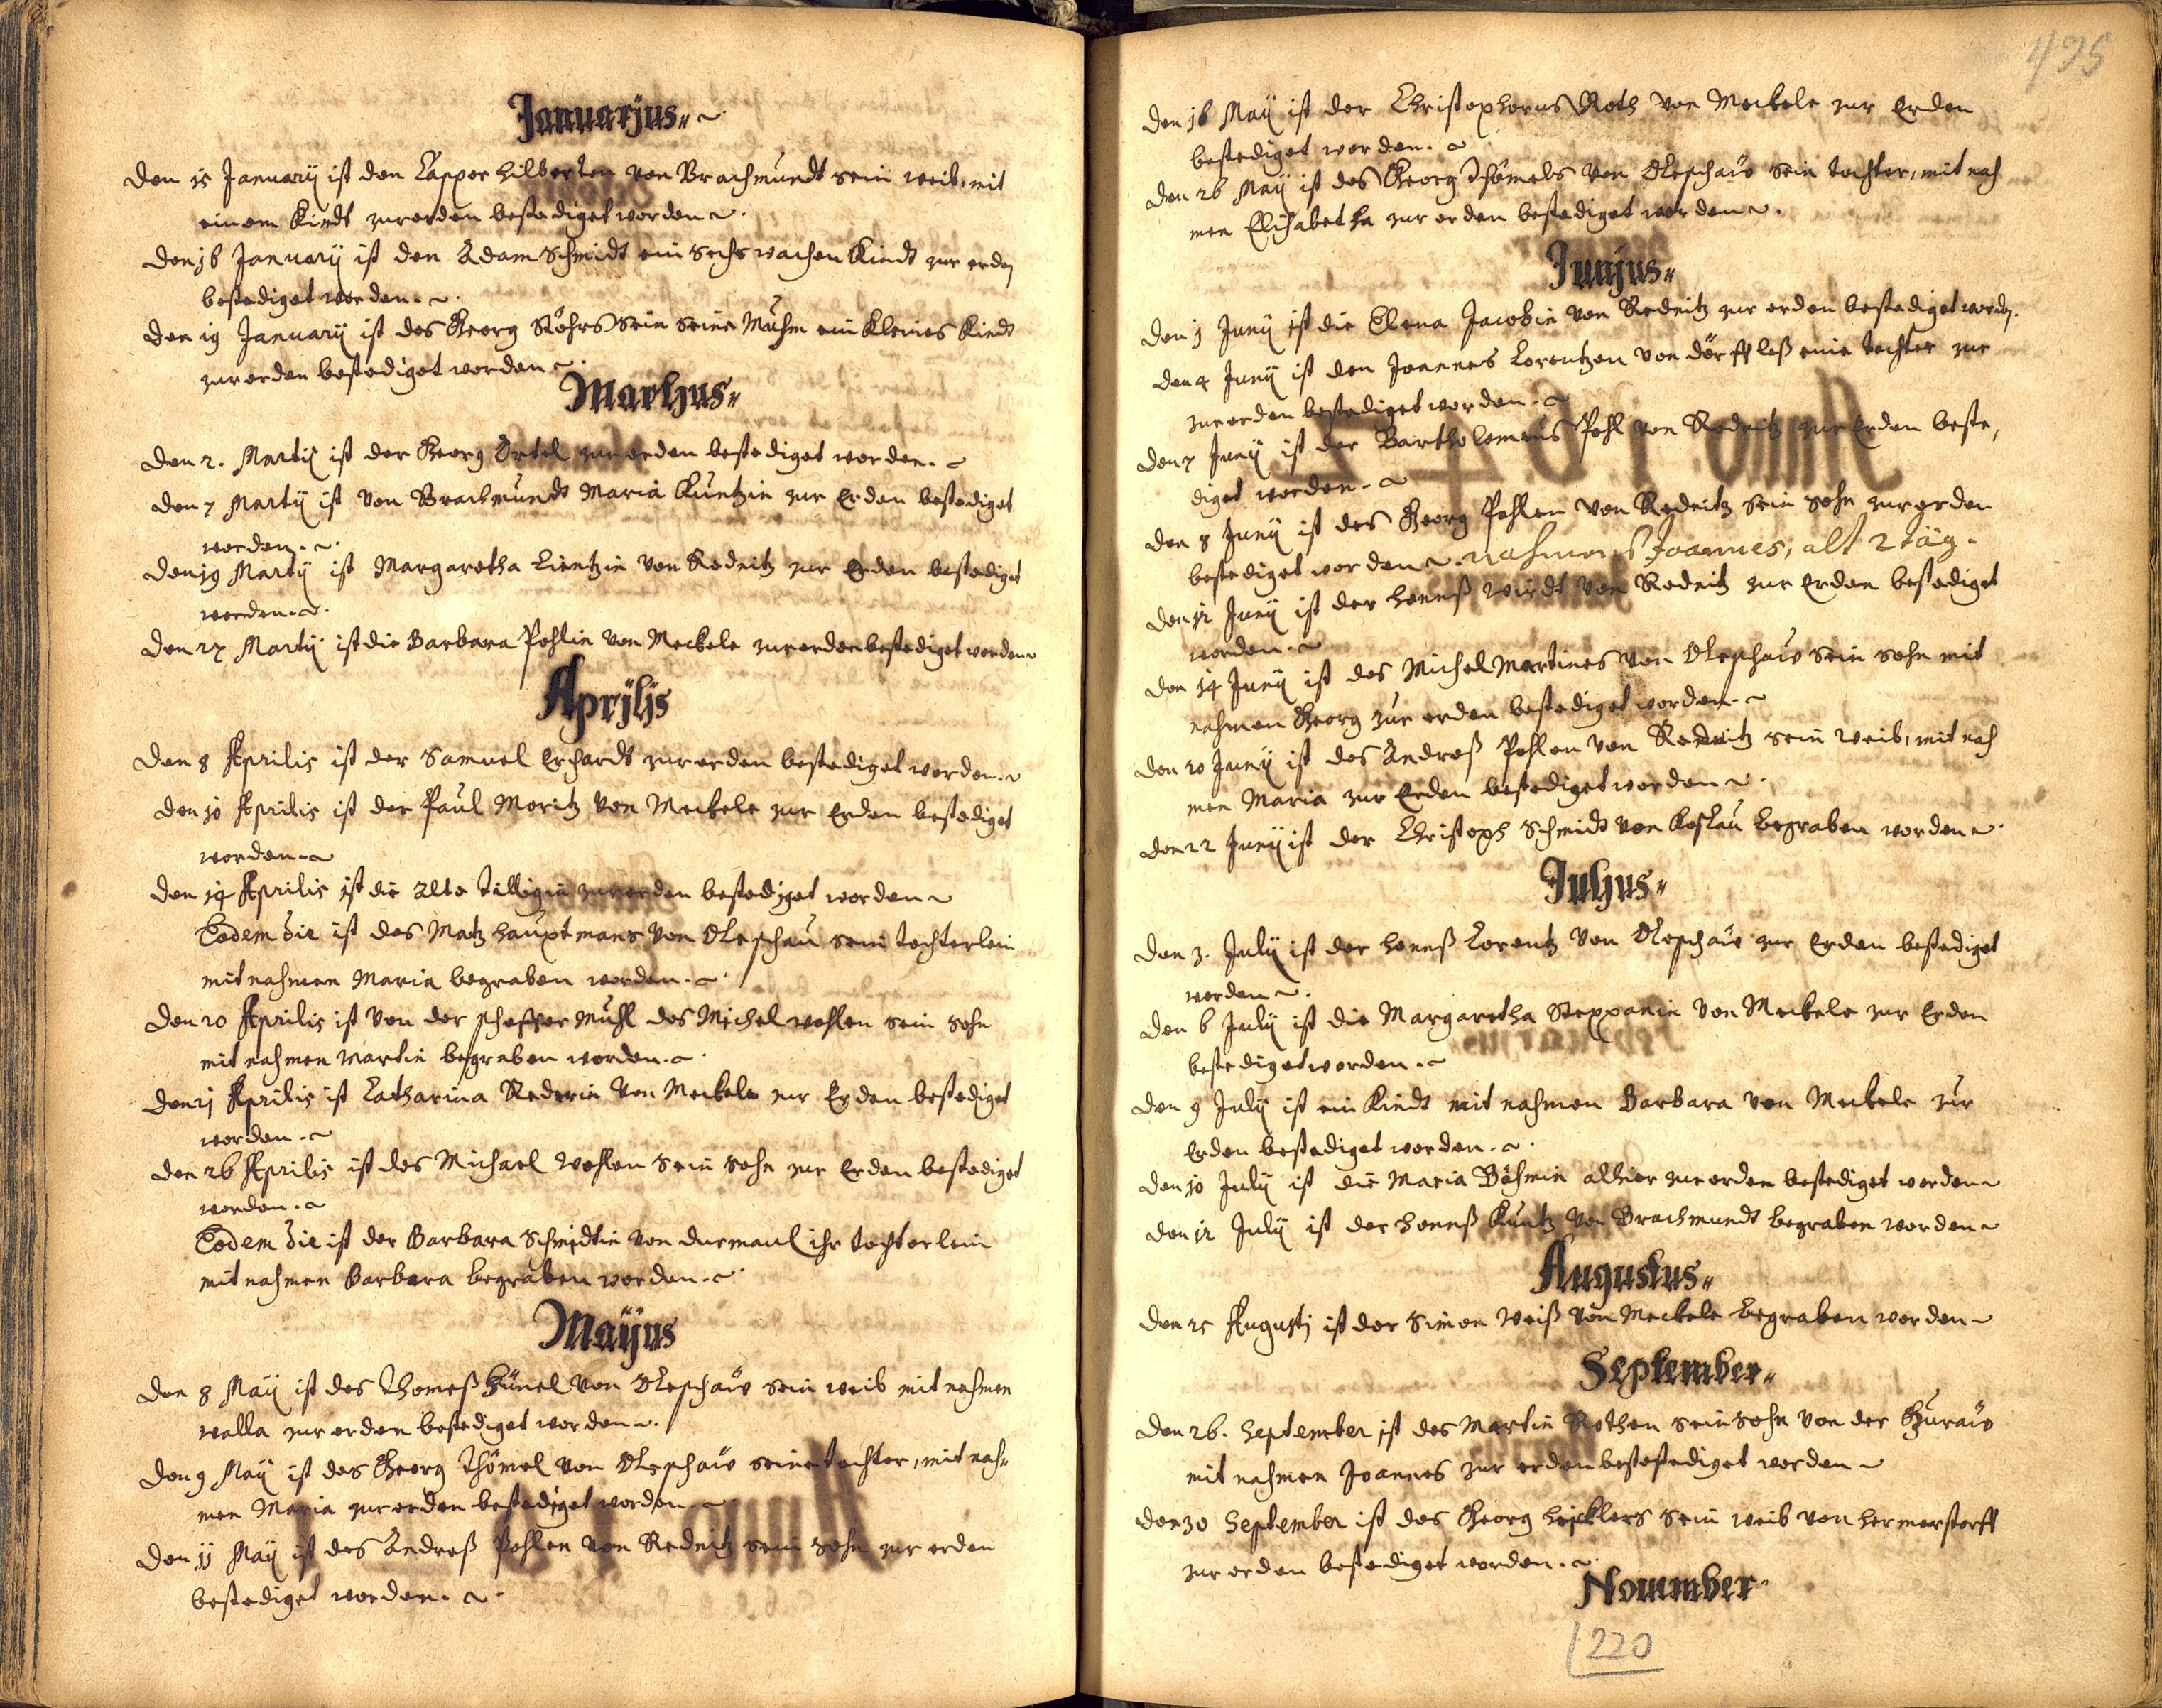 Januarjus
Den 15 Januarij ist den Casper Hilberten von Brachmundt sein weib, mit
einem Kindt zur erden bestediget worden
Den 16 Januarij ist den Adam Schmidt ein sechs wachen Kindt zur erden
bestediget worden.
Den 19 Januarij ist des Georg Röhrs sein seine Muhm ein Kleines Kindt
zur erden bestediget worden
Martyus
Den 2. Martij ist der Georg Örtel zur erden bestediget worden.
Den 7 Martij ist von Brachmundt Maria Kuntzin zur Erden bestediget
worden.
Den 19 Martij ist Margaretha Lientzin von Rednitz zur Erden bestediget
worden.
Den 27 Martij ist die Barbara Pohlin von Meckele zur erden bestediget worden
Aprjljs
Den 8 Aprilis ist der Samuel Erhardt zur erden bestediget worden.
Den 10 Aprilis ist der Paul Moritz von Meckele zur Erden bestediget
worden.
Den 14 Aprilis ist die alte zur erden bestediget worden
Eodem die ist des Matz Hauptmans von Oleschau sein tochterlein
mit nahmen Maria begraben worden.
Den 20 Aprilis ist von der Scheffer Muhl des Michel wohlen sein sohn
mit nahmen Martin begraben worden.
Den 21 Aprilis ist Catharina Rederin von Meckele zur Erden bestediget
worden.
Den 26 Aprilis ist des Michael wohlen sein sohn zur Erden bestediget
worden.
Eodem die ist der Barbara Schmidtin von durmaul ihr tochterlein
mit nahmen Barbara begraben worden.
Maÿus
Den 8 Maij ist des Thomeß Hünel von Oleschaw sein weib mit nahmen
walla zur erden bestediget worden.
Den 9 Maij ist des Georg Thömel von Oleschaw seine tochter, mit nah=
men Maria zur erden bestediget worden.
Den 11 Maij ist des Andreß Pohlen von Rednitz sein sohn zur erden
bestediget worden.
495
Den 16 Maij ist der Christophorus Roth von Meckele zur Erden
bestediget worden.
Den 26 Maij ist des Georg Thömels von Oleschaw sein tochter, mit nah
men Elisabetha zur erden bestediget worden.
Junÿus
Den 1 Junij ist die Elena Jacobin von Rednitz zur erden bestediget worden.
Den 4 Junij ist den Joannes Lorentzen von dörffleß eine tochter zur
zur erden bestediget worden.
Den 7 Junij ist der Bartholomeus Pohl von Rednitz zur Erden beste,
diget worden.
Den 8 Junij ist des Georg Pohlen von Rednitz sein sohn zur erden
bestediget worden. nahmens Joannes, alt 2 täg.
Den 12 Junij ist der Hanß Wirdt von Rednitz zur Erden bestediget
worden.
Den 14 Junij ist des Michel Martines von Oleschaw sein sohn mit
nahmen Georg zur erden bestediget worden.
Den 20 Junij ist des Andreß Pohlen von Rednitz sein weib, mit nah
men Maria zur Erden bestediget worden.
Den 22 Junij ist der Christoph Schmidt von Koslau begraben worden.
Julyus
Den 3. Julij ist der Hanß Lorentz von Oleschaw zur Erden bestediget
worden.
Den 6 Julij ist die Margaretha Steppanin von Meckele zur Erden
bestediget worden.
Den 9 Julij ist ein Kindt mit nahmen Barbara von Meckele zur
Erden bestediget worden.
Den 10 Julij ist die Maria Böhmin alhier zur erden bestediget worden
Den 12 Julij ist der Hanß Kuntz von Brachmundt begraben worden
Augustus
Den 25 Augusti ist der Simon Weiß von Meckele begraben worden
September
Den 26. September ist des Martin Rothen sein sohn von der Guraw
mit nahmen Joannes zur erden bestestediget worden
Den 30 September ist des Georg Heicklers sein weib von Hermerstorff
zur erden bestediget worden.
Nouember
220